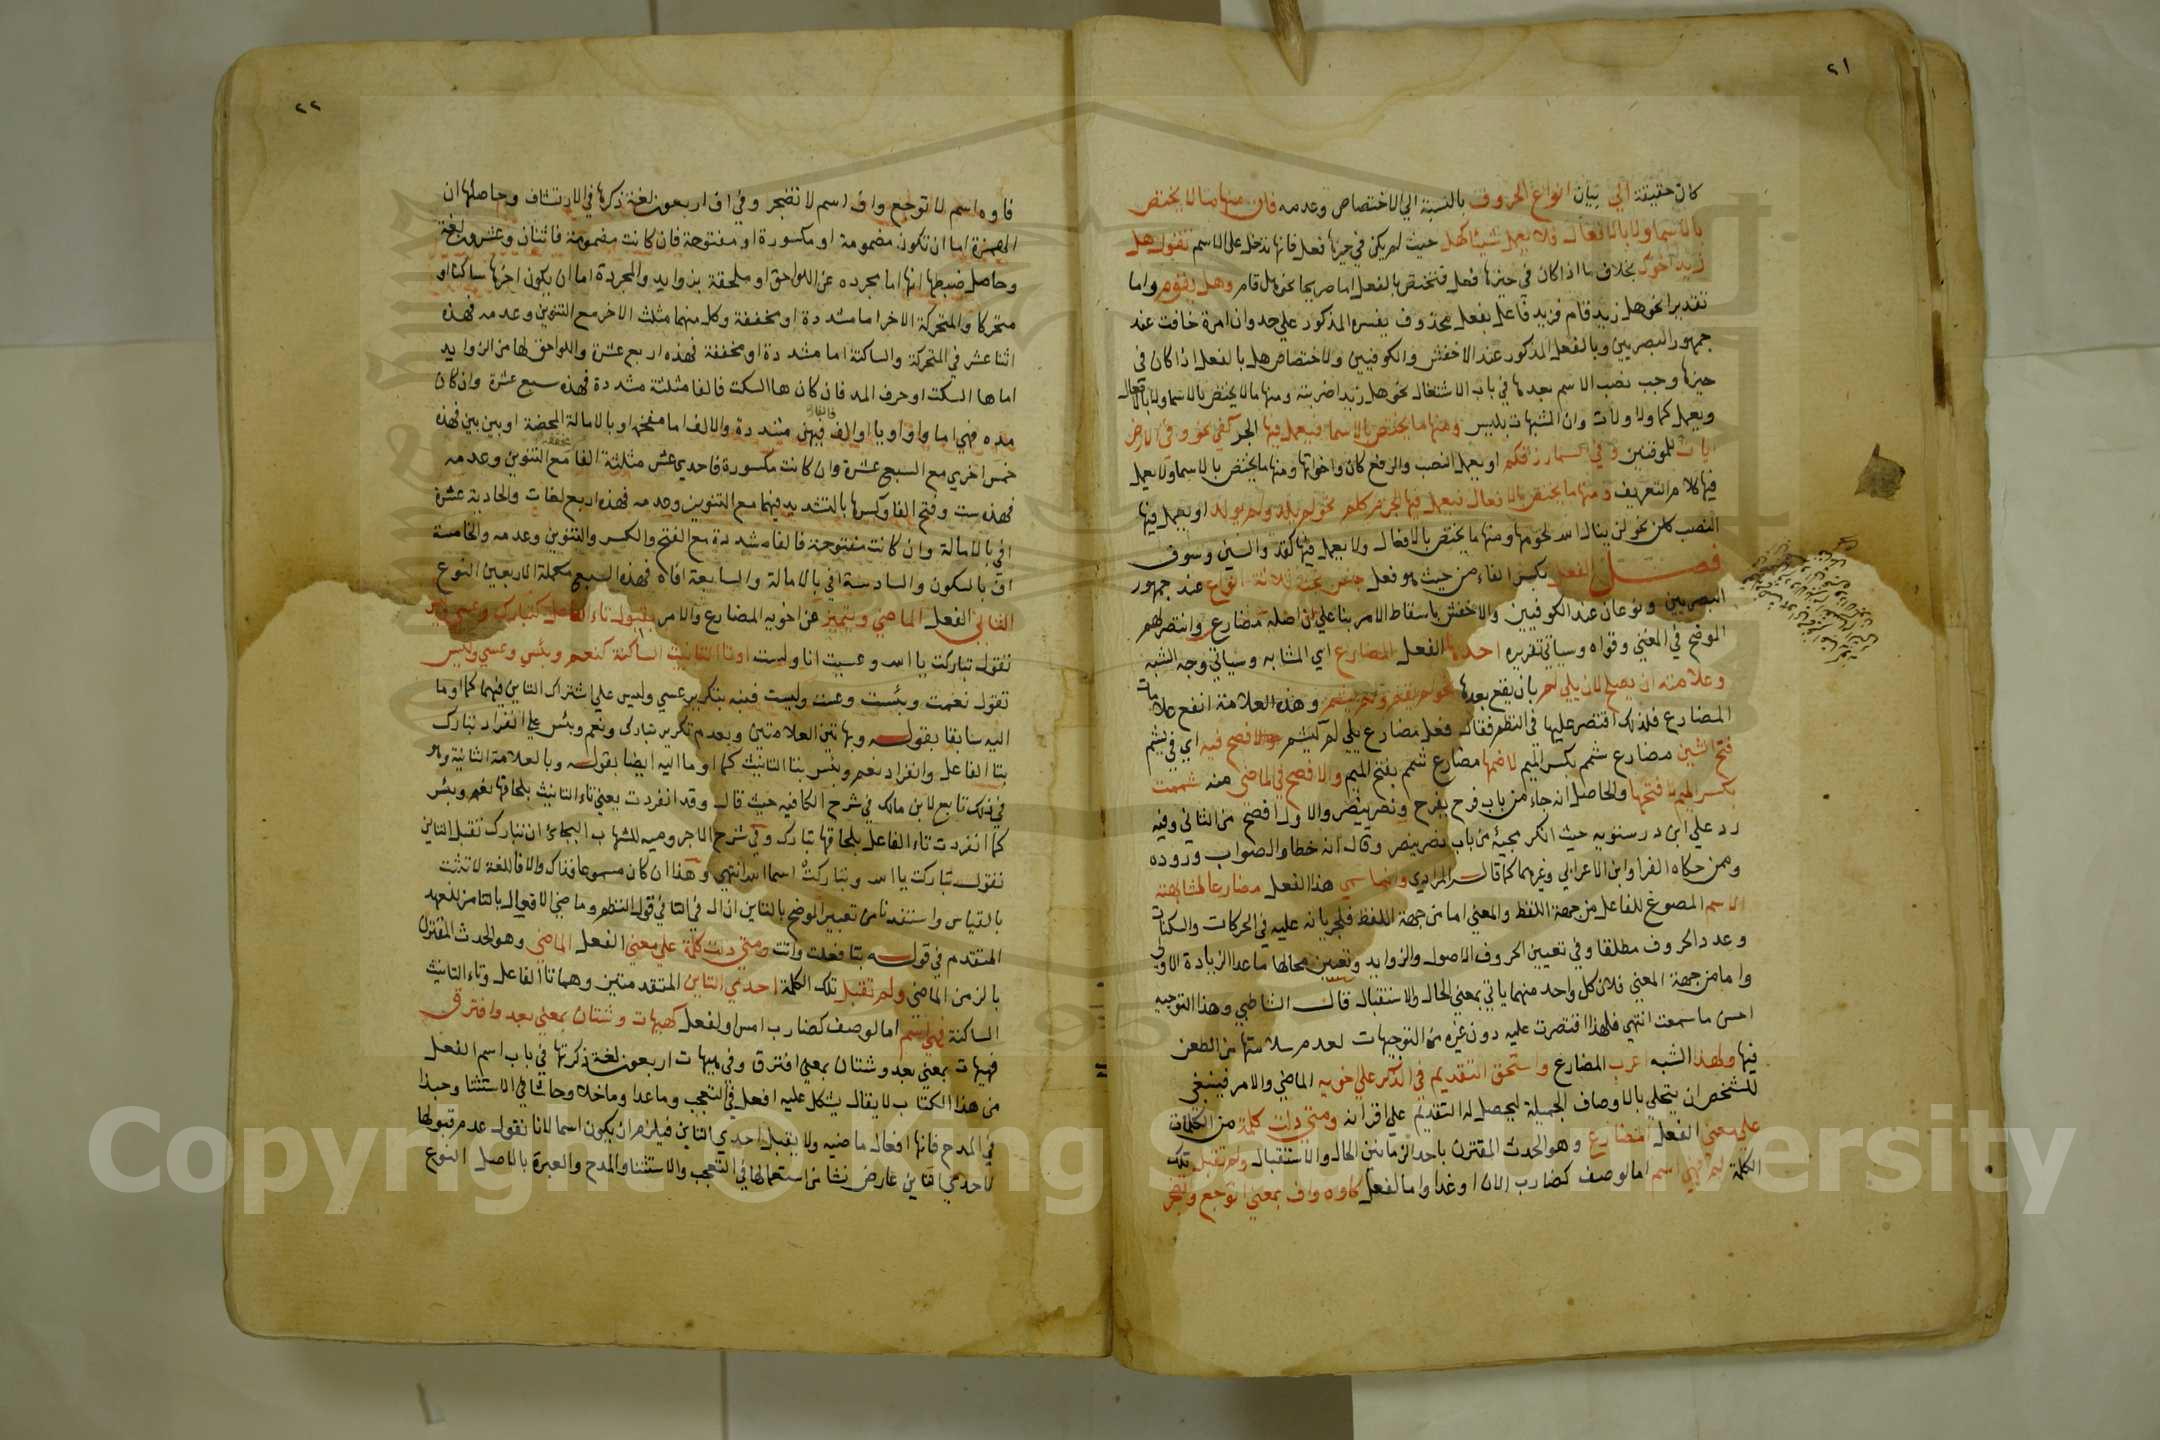 ٢١
كان حقيقة الي بيان انواع الحروف بالنسبة الي الاختصاص وعدمه فان منها ما لا يختص
بالاسما ولا بالافعال فلا يعمل شيئا كهل حيث لم يكن في حيزها فعل فانها تدخل على الاسم تقول هل
زيد اخوك بخلاف ما اذا كان في حيزها فعل فتختص بالفعل اما صريحا نحو هل قام وهل يقوم واما
تقديرا نحو هل زيد قام فزيد فاعل بفعل محذوف يفسره المذكور علي حد وان امرة خافت عند
جمهور البصريين وبالفعل المذكور عند الاخفش والكوفيين ولاختصاص هل بالفعل اذا كان في
حيزها وجب نصب الاسم بعدها في باب الاشتغال نحو هل زيدا ضربته ومنها ما لا يختص بالاسما ولا بالافعال
ويعمل كما ولا ولات وان المشبهات بليس ومنها ما يختص بالاسما فيعمل فيها الجر كفي نحو وفي الارض
ايات للموقنين وفي السما رزقكم او يعمل النصب والرفع كان واخواتها ومنها ما يختص بالاسما ولا يعمل
فيها كلام التعريف ومنها ما يختص بالافعال فيعمل فيها الجزم كلم نحو لم يلد ولم يولد او يعمل فيها
النصب كلن نحو لن ينال الله لحومها ومنها ما يختص بالافعال ولا يعمل فيها كقد والسين وسوف
فصل الفعل بكسر الفاء من حيث هو فعل جنس تحته ثلاثة انواع عند جمهور
البصريين ونوعان عند الكوفيين والاخفش باسقاط الامر بنا علي ان اصله مضارع وانتصر لهم
الموضح في المغني وقواه وسياتي تقريره احدها الفعل المضارع اي المشابه وسياتي وجه الشبه
وعلامته ان يصلح لان يلي لم بان يقع بعدها نحو لم يقم ولم يشم وهذه العلامة انفع علامات
المضارع فلذلك اقتصر عليها في النظم فقال فعل مضارع يلي لم كيشم والافصح فيه اي في يشم
فتح الشين مضارع شمم بكسر الميم لا ضمها مضارع شمم بفتح الميم والافصح في الماضي منه شممت
بكسر الميم لا فتحها والحاصل انه جاء من باب فرح يفرح ونصر ينصر والاول افصح من الثاني وفيه
رد علي ابن درستويه حيث انكر مجيئه من باب نصر ينصر وقال انه خطا والصواب وروده
وممن حكاه الفرا وابن الاعرابي وغيرهما كما قال المرادي وانما سمي هذا الفعل مضارعا لمشابهته
الاسم المصوغ للفاعل من جهة اللفظ والمعني اما من جهة اللفظ فلجريانه عليه في الحركات والسكنات
وعدد الحروف مطلقا وفي تعيين الحروف الاصول والزوايد وتعيين محالها ما عدا الزيادة الاولي
واما من جهة المعني فلان كل واحد منهما ياتي بمعني الحال والاستقبال قال الشاطبي وهذا التوجيه
احسن ما سمعت انتهي فلهذا اقتصرت عليه دون غيره من التوجيهات لعدم سلامتها من الطعن
فيها ولهذا الشبه اعرب المضارع واستحق التقديم في الذكر علي اخويه الماضي والامر فينبغي
للشخص ان يتحلي بالاوصاف الجميلة ليحصل له التقديم علي اقرانه ومتي دلت كلمة من الكلمات
علي معني الفعل المضارع وهو الحدث المقترن باحد الزمانين الحال والاستقبال ولم تقبل تلك
الكلمة لم فهي اسم اما لوصف كضارب الان او غدا واما لفعل كاوه واف بمعني اتوجع واتضجر
٢٢
فاوه اسم لاتوجع واف اسم لاتضجر وفي اف اربعون لغة ذكرها في الارتشاف وحاصلها ان
الهمزة اما ان تكون مضمومة او مكسورة او مفتوحة فان كانت مضمومة فاثنان وعشرون لغة
وحاصل ضبطها انها اما مجرده عن اللواحق او ملحقة بزوايد والمجردة اما ان يكون اخرها ساكنا او
متحركا والمتحركة الاخر اما مشددة او مخففة وكل منهما مثلث الاخر مع التنوين وعدمه فهذه
اثنا عشر في المتحركة والساكنة اما مشددة او مخففة فهذه اربع عشرة واللواحق لها من الزوايد
اما ها السكت او حرف المد فان كان ها السكت فالفا مثلثة مشددة فهذه سبع عشرة وان كان
مده فهي اما واو او يا او الف فيهن مشددة والالف اما مفخمه او بالامالة المحضة او بين بين فهذه
خمس اخري مع السبع عشرة وان كانت مكسورة فاحدي عشر مثلثة الفا مع التنوين وعدمه
فهذه ست وفتح الفا وكسرها بالتشديد فيهما مع التنوين وعدمه فهذه اربع لغات والحادية عشرة
افي بالامالة وان كانت مفتوحة فالفا مشددة مع الفتح والكسر والتنوين وعدمه والخامسة
اف بالسكون والسادسة افي بالامالة والسابعة افاه فهذه السبع مكملة الاربعين النوع
الثاني الفعل الماضي ويتميز عن اخويه المضارع والامر بقبول تاء الفاعل كتبارك وعسي وليس
تقول تباركت يا الله وعسيت انا ولست او تا التانيث الساكنة كنعم وبئس وعسي وليس
تقول نعمت وبئست وعست وليست فنبه بتكرير عسي وليس علي اشتراك التاين فيهما كما اوما
اليه سابقا بقوله وبهاتين العلامتين وبعدم تكرير تبارك ونعم وبئس علي انفراد تبارك
بتا الفاعل وانفراد نعم وبئس بتا التانيث كما اوما اليه ايضا بقوله وبالعلامة الثانية وهو
في ذلك تابع لابن مالك في شرح الكافيه حيث قال وقد انفردت يعني تاء التانيث بلحاقها نعم وبئس
كما انفردت تاء الفاعل بلحاقها تبارك وفي شرح الاجروميه للشهاب البجائي ان تبارك تقبل التاين
تقول تباركت يا الله وتباركت اسما الله انتهي وهذا ان كان مسموعا فذاك والا فاللغة لا تثبت
بالقياس واستفدنا من تعبير الموضح بالتاين ان ال في التا في قول النظم وماضي الافعال بالتا مز للعهد
المتقدم في قوله بتا فعلت واتت ومتي دلت كلمة علي معني الفعل الماضي وهو الحدث المقترن
بالزمن الماضي ولم تقبل تلك الكلمة احدي التاين المتقدمتين وهما تا الفاعل وتاء التانيث
الساكنة فهي اسم اما لوصف كضارب امس او لفعل كهيهات وشتان بمعني بعد وافترق
فهيهات بمعني بعد وشتان بمعني افترق وفي هيهات اربعون لغة ذكرتها في باب اسم الفعل
من هذا الكتاب لا يقال يشكل عليه افعل في التعجب وما عدا وما خلا وحاشا في الاستثنا وحبذا
في المدح فانها افعال ماضيه ولا يقبل احدي التاين فيلزم ان يكون اسما لانا نقول عدم قبولها
لاحدي التاين عارض نشا من استعمالها في التعجب والاستثنا والمدح والعبرة بالاصل النوع
Copyright © King Saud University